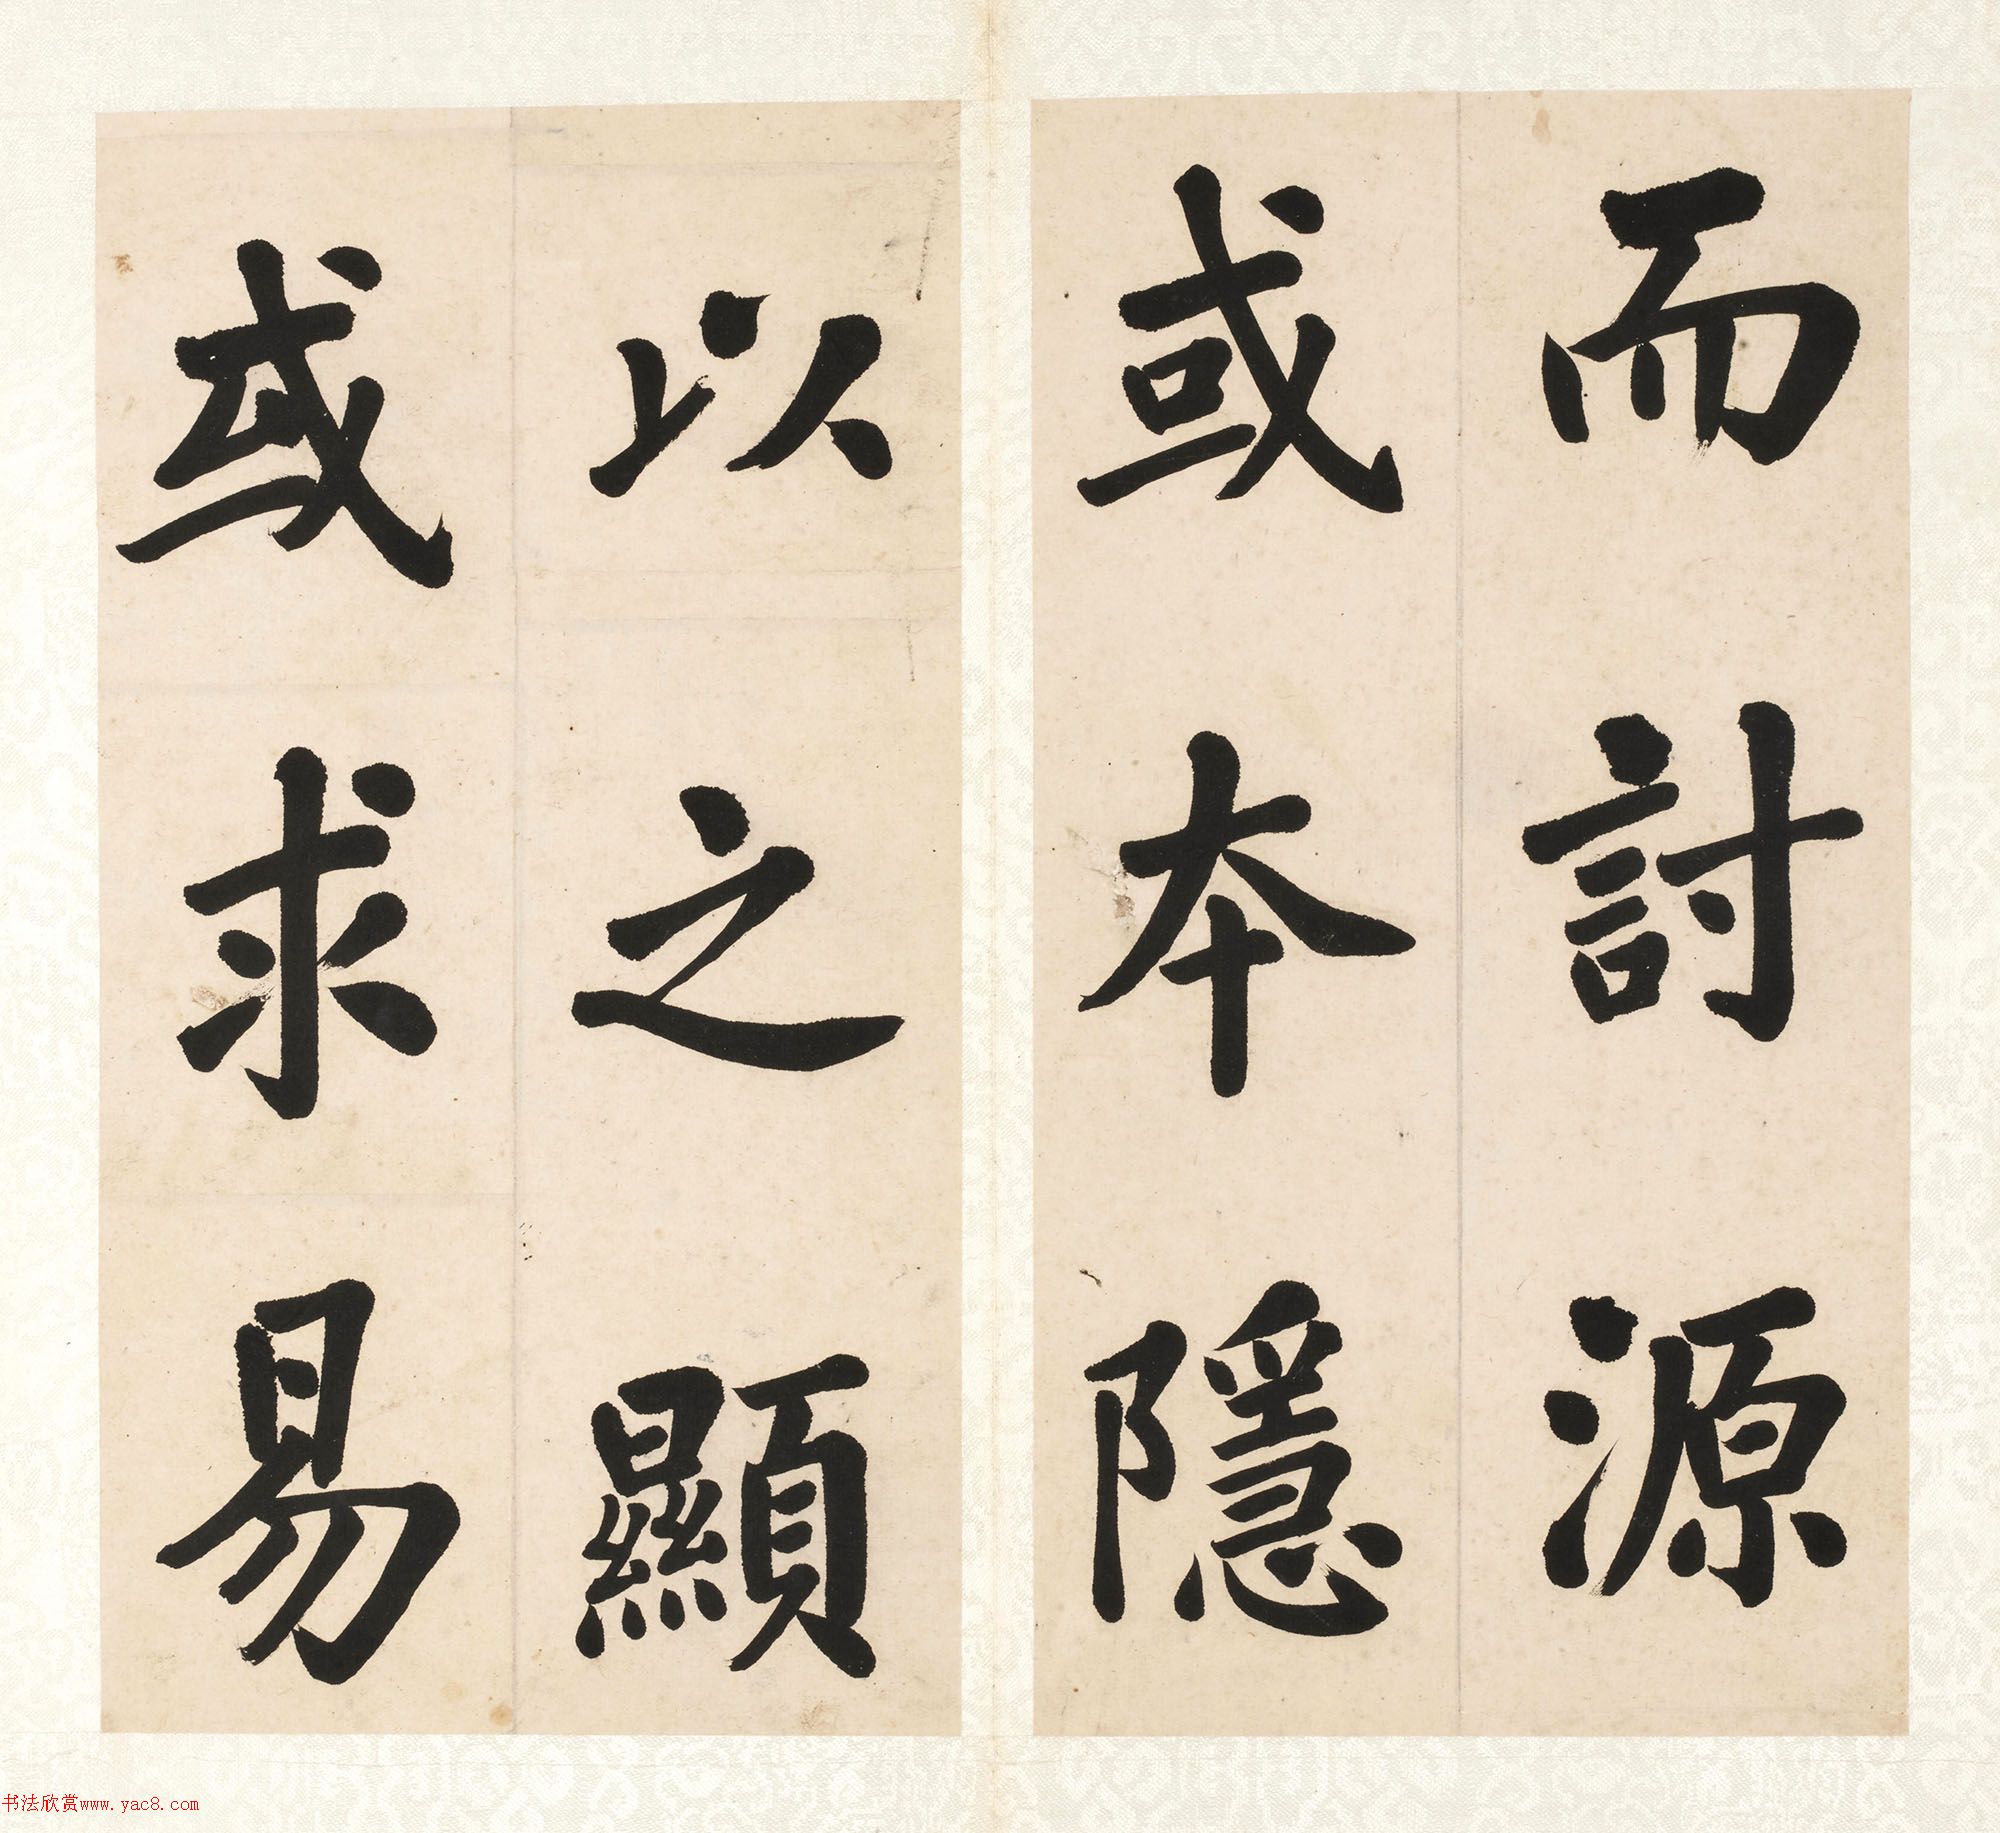 而討源
或本隱
以之顯
或求易
书法欣赏www.yac8.com